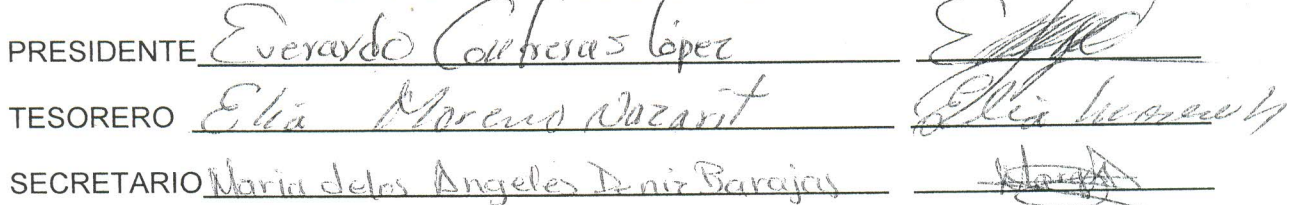 PRESIDENTE Everardo Contreras López
TESORERO Elia Moreno Nazarit Elia Moreno N
SECRETARIO Maria delos Angeles Deniz Barajas